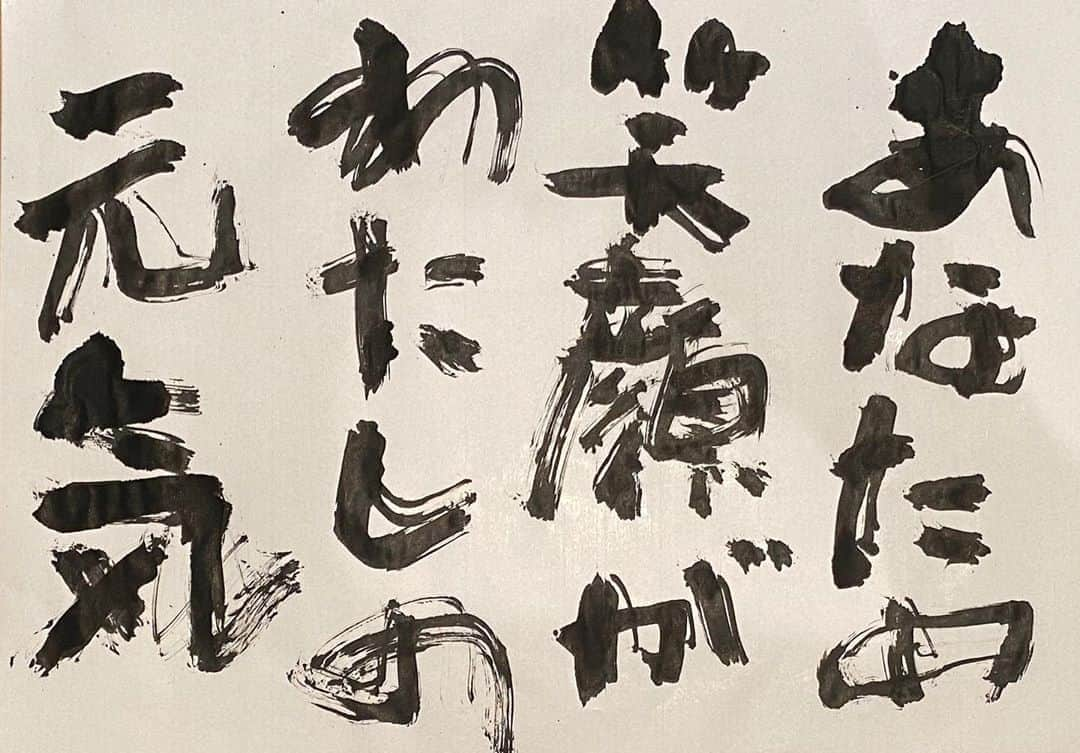 あなたの
笑顔が
わたしの
元気